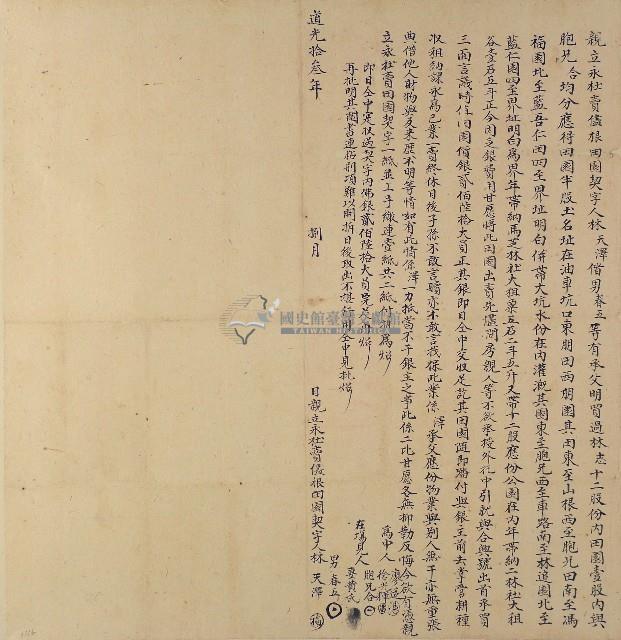 親立永杜賣儘根田園契字人林天澤偕男春五等有承父明買過林志十二股份內田園壹股內與
胞兄合均分應得田園半股土名址在油車坑口東朋田西朋園其田東至山根西至胞兄田南至馮
福園北至藍吾仁田四至界址明白併帶大坑水份在內灌溉其園東至胞兄西至車路南至林追園北至
藍仁園四至界址明白為界年帶納馬芝林社大租粟五石二斗五升又帶十二股應份公園在內年帶納二林社大租
谷壹石五斗正今因乏銀費用甘愿將此田園出賣先儘問房親人等不欲承授外托中引就與合興號出首承買
三面言議時值田園價銀貳佰陸拾大員正其銀即日仝中交收足訖其田園隨即踏付與銀主前去掌管耕種
收租納課永為己業一賣終休日後子孫不敢言贖亦不敢言找保此業係澤承父應份物業與別人無干亦無重張
典借他人財物與及來歷不明等情如有此情係澤一力抵當不干銀主之事此係二比甘愿各無抑勒反悔今欲有憑親
立永杜賣田園契字一紙並上手繳連壹紙共二紙付執為炤
即日仝中實收過契字內佛銀貳佰陸拾大員完足炤
再批明其鬮書連招別項難以開拆日後取出不堪行用仝中見批炤
為中人
在場見人胞兄合
妻黃氏
男春五
道光拾叁年 捌月 日親立永杜賣儘根田園契字人林天澤
國史館臺灣文獻館
TAIWAN HISTORICA